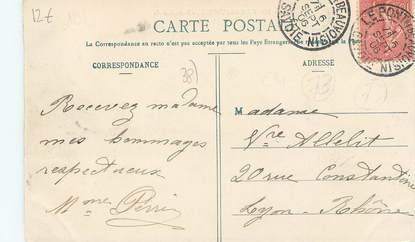 12€
CARTE POSTALE
La Correspondance au recto n'est pas acceptée par tous les Pays Etrangers
CORRESPONDANCE
ADRESSE
38
13
LE PONT-DE-BEAUVOISIN
SAVOIE
SEPT
05
Recevez madame
mes hommages
respectueux
Mme Perrin
Madame
Vve Allelit
20 rue Constantine
Lyon - Rhône